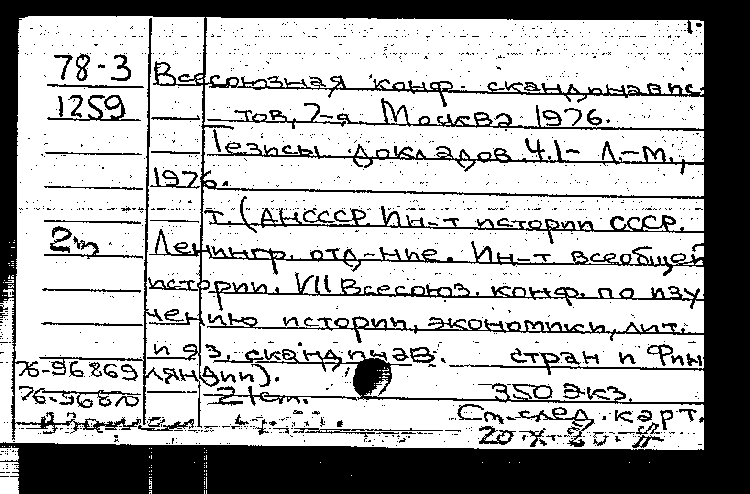 78-3 Всесоюзная конф. скандинавис-
1259 тов, 7-я. Москва 1976.
Тезисы докладов. Ч.1- Л.-М.,
1976.
т. (АН СССР. Ин-т истории СССР.
Ленингр. отд-ние. Ин-т всеобщей
истории. VII Всесоюз. конф. по изу-
чению истории, экономики, лит.
и яз. скандинав. стран и Фин-
76-96869 ляндии).
76-96870 21 cm. 350 экз.
См. след. карт.